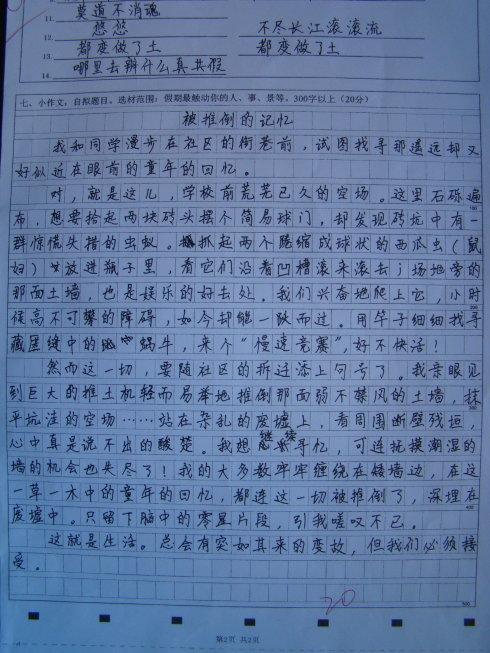 莫道不消魂
悠悠 不尽长江滚滚流
都变做了土 都变做了土
14. 哪里去辨什么真共假
七、小作文，自拟题目。选材范围：假期最触动你的人、事、景等。300字以上（20分）
被推倒的记忆
我和同学漫步在社区的街巷前，试图找寻那遥远却又
好似近在眼前的童年的回忆。
对，就是这儿，学校前荒芜已久的空场。这里石砾遍
布，想要拾起两块砖头摆个简易球门，却发现砖坑中有一
群惊慌失措的虫蚁。抓起两个蜷缩成球状的西瓜虫（鼠
妇）放进瓶子里，看它们沿着凹槽滚来滚去；场地旁的
那面土墙，也是娱乐的好去处。我们兴奋地爬上它，小时
候高不可攀的障碍，如今却能一跃而过。用竿子细细找寻
藏匿缝中的蜗牛，来个“慢速竞赛”，好不快活！
然而这一切，要随社区的拆迁添上句号了。我亲眼见
到巨大的推土机轻而易举地推倒那面弱不禁风的土墙，抹
平坑洼的空场……站在杂乱的废墟上，看周围断壁残垣，
心中真是说不出的酸楚。我想继续寻忆，可连抚摸潮湿的
墙的机会也失尽了！我的大多数牢牢缠绕在矮墙边，在这
一草一木中的童年的回忆，都连这一切被推倒了，深埋在
废墟中。只留下脑中的零星片段，引我嗟叹不已。
这就是生活。总会有突如其来的变故，但我们必须接
受。
100
300
400
500
20
第2页 共2页